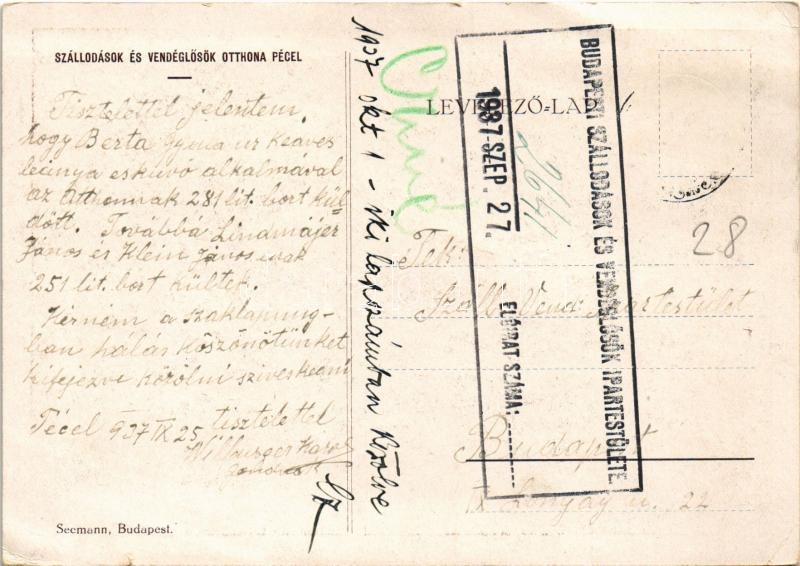 SZÁLLODÁSOK ÉS VENDÉGLŐSÖK OTTHONA PÉCEL
Tisztelettel jelentem,
hogy Berta Gyula ur
leánya esküvő alkalmával
az Otthonnak 281 lit. bort kül-
dött. Továbbá Lindmájer
János és Klein János urak
251 lit. bort küldtek.
Kérném a szaklapunk-
ban hálás köszönötünket
kifejezve közölni sziveskedni
Pécel 937 IX 25 tisztelettel
Seemann, Budapest.
1937 okt 1 - iki lapszámban közölve
LEVELEZŐ-LAP
BUDAPESTI SZÁLLODÁSOK ÉS VENDÉGLŐSÖK IPARTESTÜLETE.
1937 SZEP. 27.
ELŐADAT SZÁMA:
2641
28
Tek.
Száll. Vend. Ipartestület
Budapest
IX Lónyay u. 22